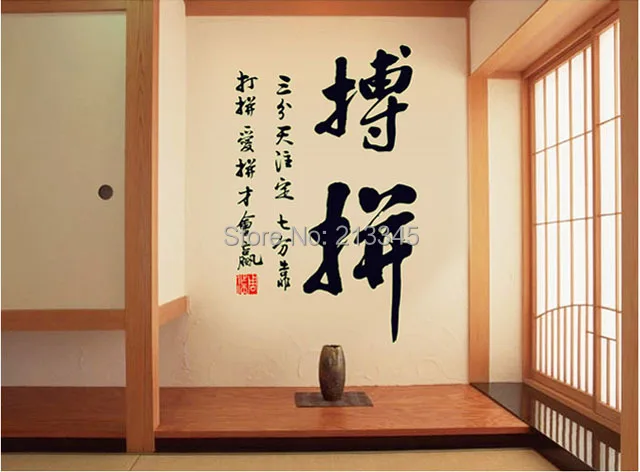 搏拼
三分天注定 七分靠
打拼 爱拼才會赢
Store No: 213345